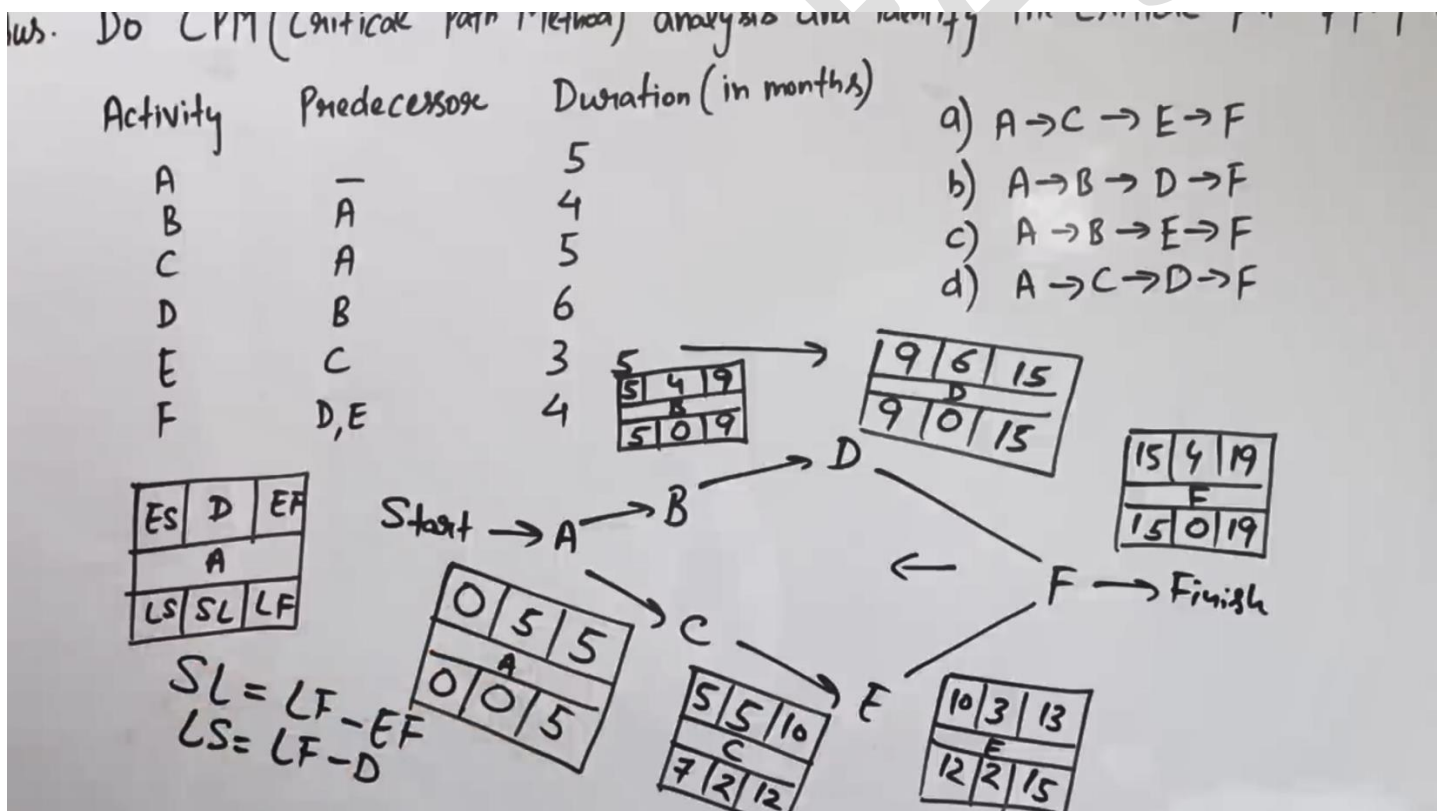 Do CPM (Critical Path Method) analysis and identify the
Activity Predecessor Duration (in months)
A — 5
B A 4
C A 5
D B 6
E C 3
F D,E 4
a) A→C→E→F
b) A→B→D→F
c) A→B→E→F
d) A→C→D→F
5
5 4 9
B
5 0 9
9 6 15
D
9 0 15
15 4 19
F
15 0 19
ES D EF
A
LS SL LF
SL = LF-EF
LS = LF-D
Start → A → B → D
F → Finish
C → E
0 5 5
A
0 0 5
5 5 10
C
7 2 12
10 3 13
E
12 2 15